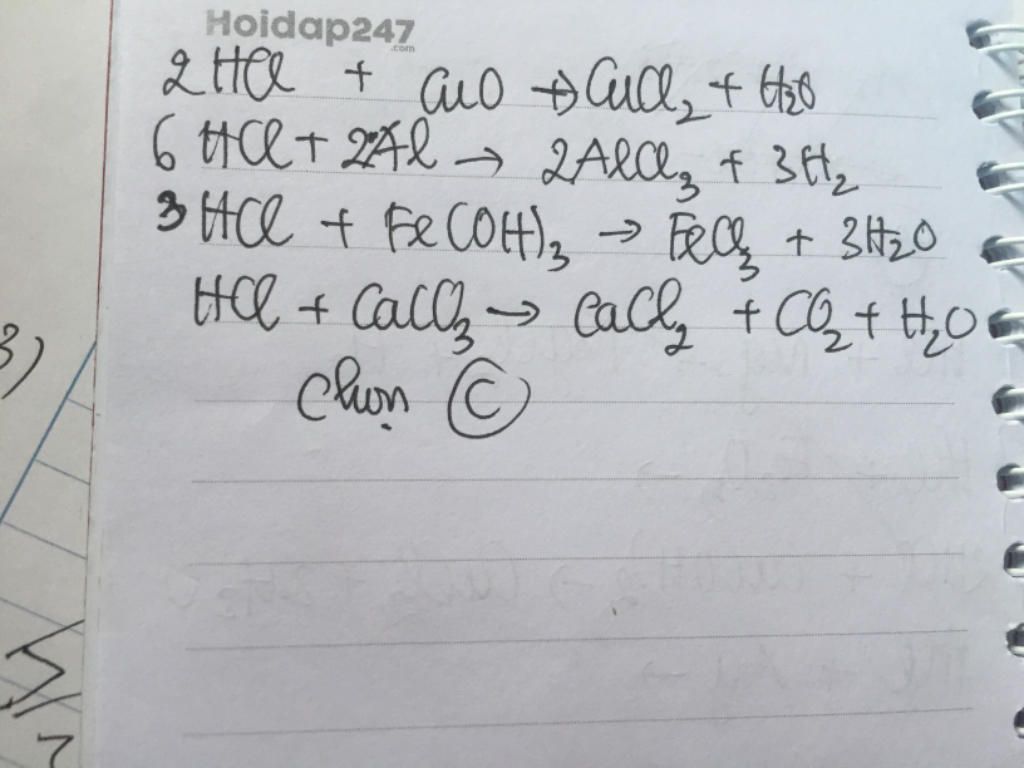 Hoidap247
.com
2HCl + CuO → CuCl₂ + H₂O
6 HCl + 2Al → 2AlCl₃ + 3H₂
3 HCl + Fe(OH)₃ → FeCl₃ + 3H₂O
HCl + CaCO₃ → CaCl₂ + CO₂ + H₂O
3)
Chọn C